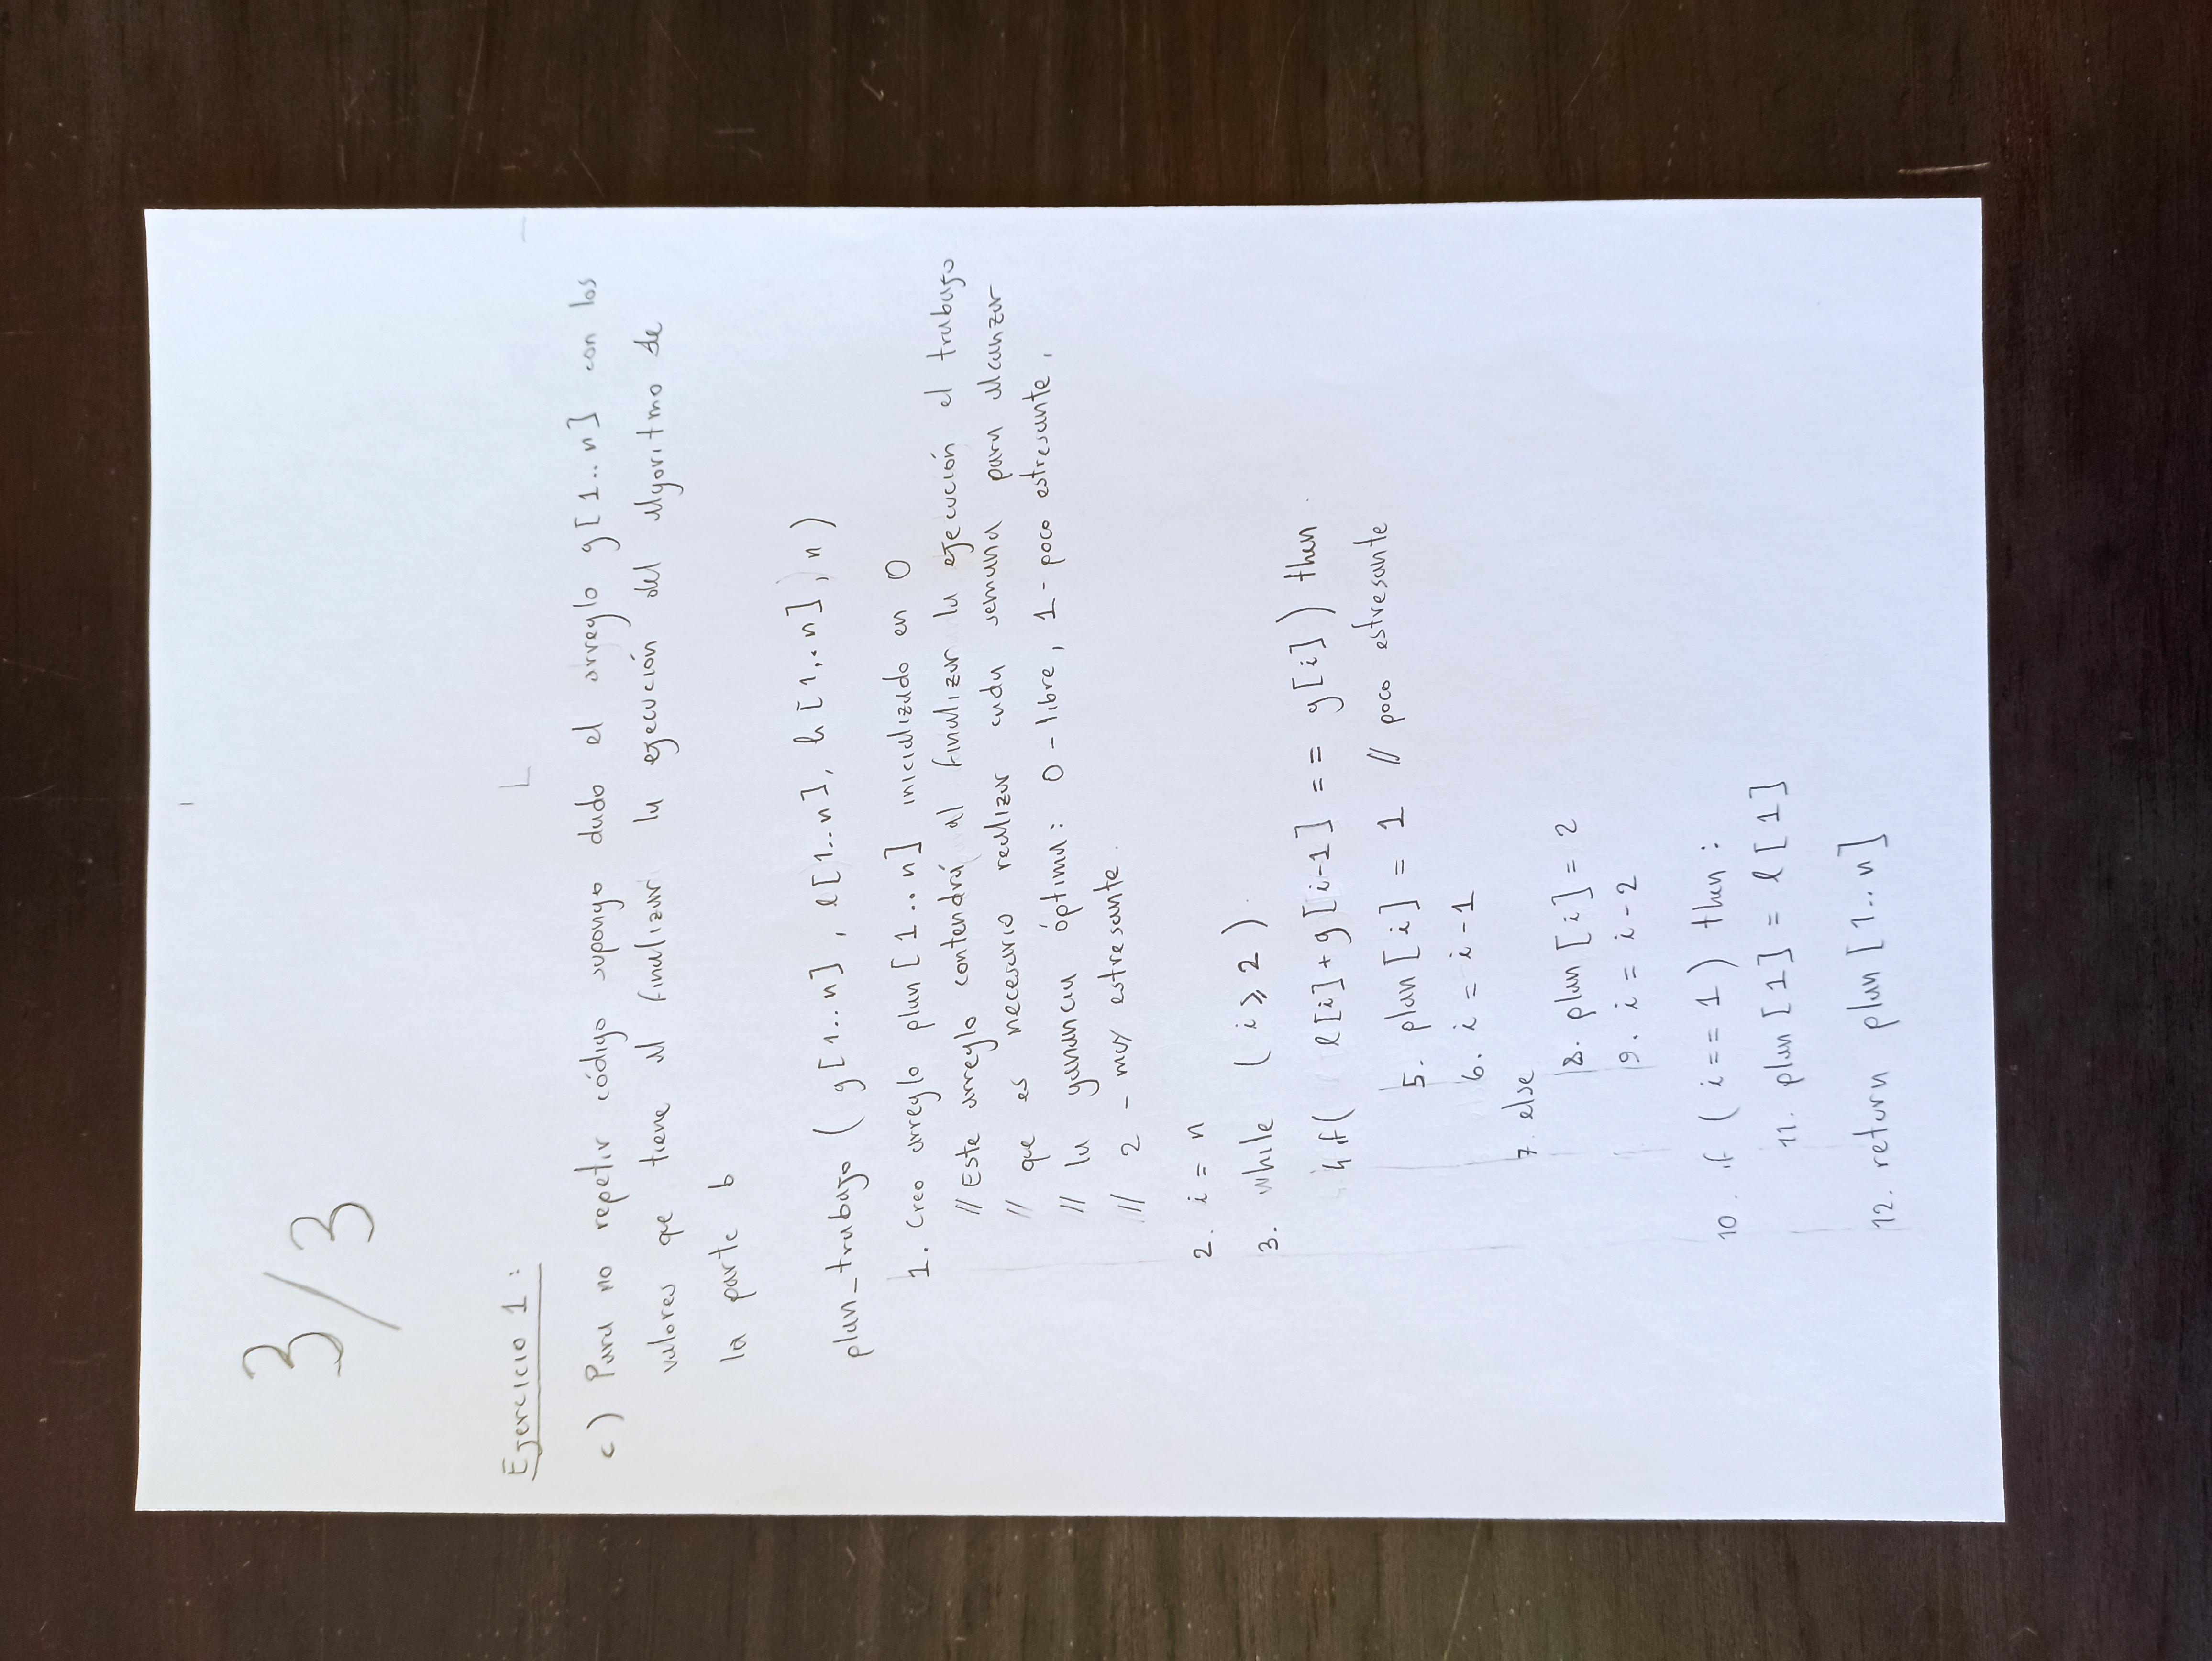 3/3
Ejercicio 1:
c) Para no repetir código supongo dado el arreglo g[1..n] con los
valores que tiene al finalizar la ejecución del algoritmo de
la parte b
plan_trabajo (g[1..n], l[1..n], h[1..n], n)
1. Creo arreglo plan[1..n] inicializado en 0
// Este arreglo contendrá al finalizar la ejecución el trabajo
// que es necesario realizar cada semana para alcanzar
// la ganancia óptima: 0-libre, 1-poco estresante,
// 2-muy estresante.
2. i = n
3. while (i ≥ 2)
4 if( l[i]+g[i-1] == g[i]) then
5. plan[i] = 1 // poco estresante
6. i = i-1
7. else
8. plan[i] = 2
9. i = i-2
10. if (i == 1) then:
11. plan[1] = l[1]
12. return plan[1..n]